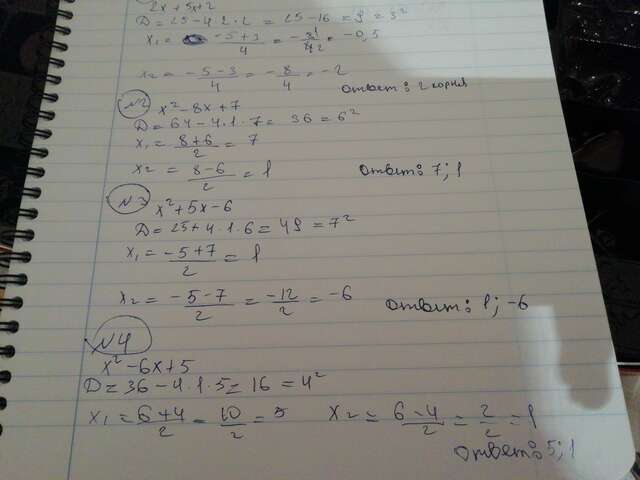 2x + 5x + 2
D = 25 - 4 · 2 · 2 = 25 - 16 = 9 = 3²
x₁ = -5+3/4 = -2/4 = -0,5
x₂ = -5-3/4 = -8/4 = -2
Ответ: 2 корня
№2 x² - 8x + 7
D = 64 - 4 · 1 · 7 = 36 = 6²
x₁ = 8+6/2 = 7
x₂ = 8-6/2 = 1 Ответ: 7; 1
№3 x² + 5x - 6
D = 25 + 4 · 1 · 6 = 49 = 7²
x₁ = -5+7/2 = 1
x₂ = -5-7/2 = -12/2 = -6 Ответ: 1; -6
№4
x² - 6x + 5
D = 36 - 4 · 1 · 5 = 16 = 4²
x₁ = 6+4/2 = 10/2 = 5 x₂ = 6-4/2 = 2/2 = 1
Ответ: 5; 1